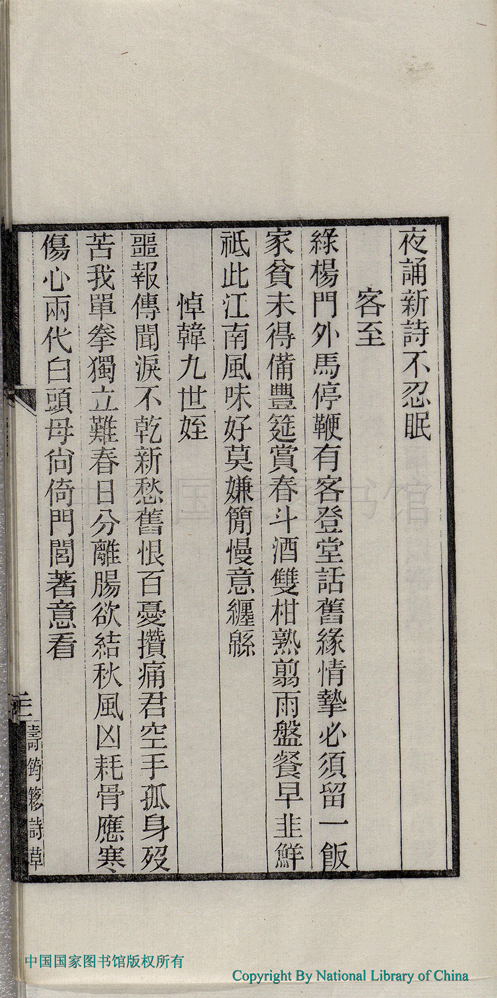 夜誦新詩不忍眠
客至
綠楊門外馬停鞭有客登堂話舊緣情摯必須留一飯
家貧未得備豐筵賞春斗酒雙柑熟翦雨盤餐早韭鮮
祗此江南風味好莫嫌簡慢意纏緜
悼韓九世姪
噩報傳聞淚不乾新愁舊恨百憂攢痛君空手孤身歿
苦我單拳獨立難春日分離腸欲結秋風凶耗骨應寒
傷心兩代白頭母尙倚門閭著意看
詩草
中国国家图书馆版权所有
Copyright By National Library of China